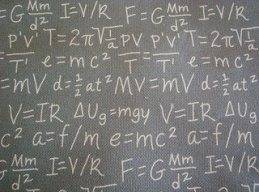 =G Mm/d² I=V/R F=G Mm/d² I=V/R
P'V' T=2π√l/a PV P'V' T=2π√l/a
T' e=mc² T = T' e=mc²
=mV d=½at² MV=mV d=½at²
V=IR ΔUg=mgy V=IR ΔUg
c² a=f/m e=mc² a=f/m
G Mm/d² I=V/R F=G Mm/d² I=V/R